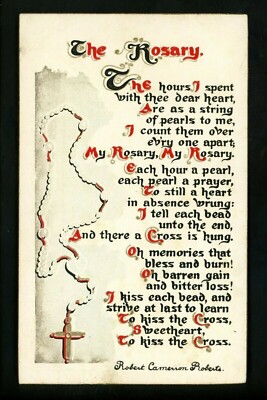 The Rosary.
The hours I spent
with thee dear heart,
Are as a string
of pearls to me,
I count them over
evry one apart;
My Rosary, My Rosary.
Each hour a pearl,
each pearl a prayer,
To still a heart
in absence wrung:
I tell each bead
unto the end,
And there a Cross is hung.
Oh memories that
bless and burn!
Oh barren gain
and bitter loss!
I kiss each bead, and
strive at last to learn
To kiss the Cross,
Sweetheart,
To kiss the Cross.
Robert Cameron Roberts.